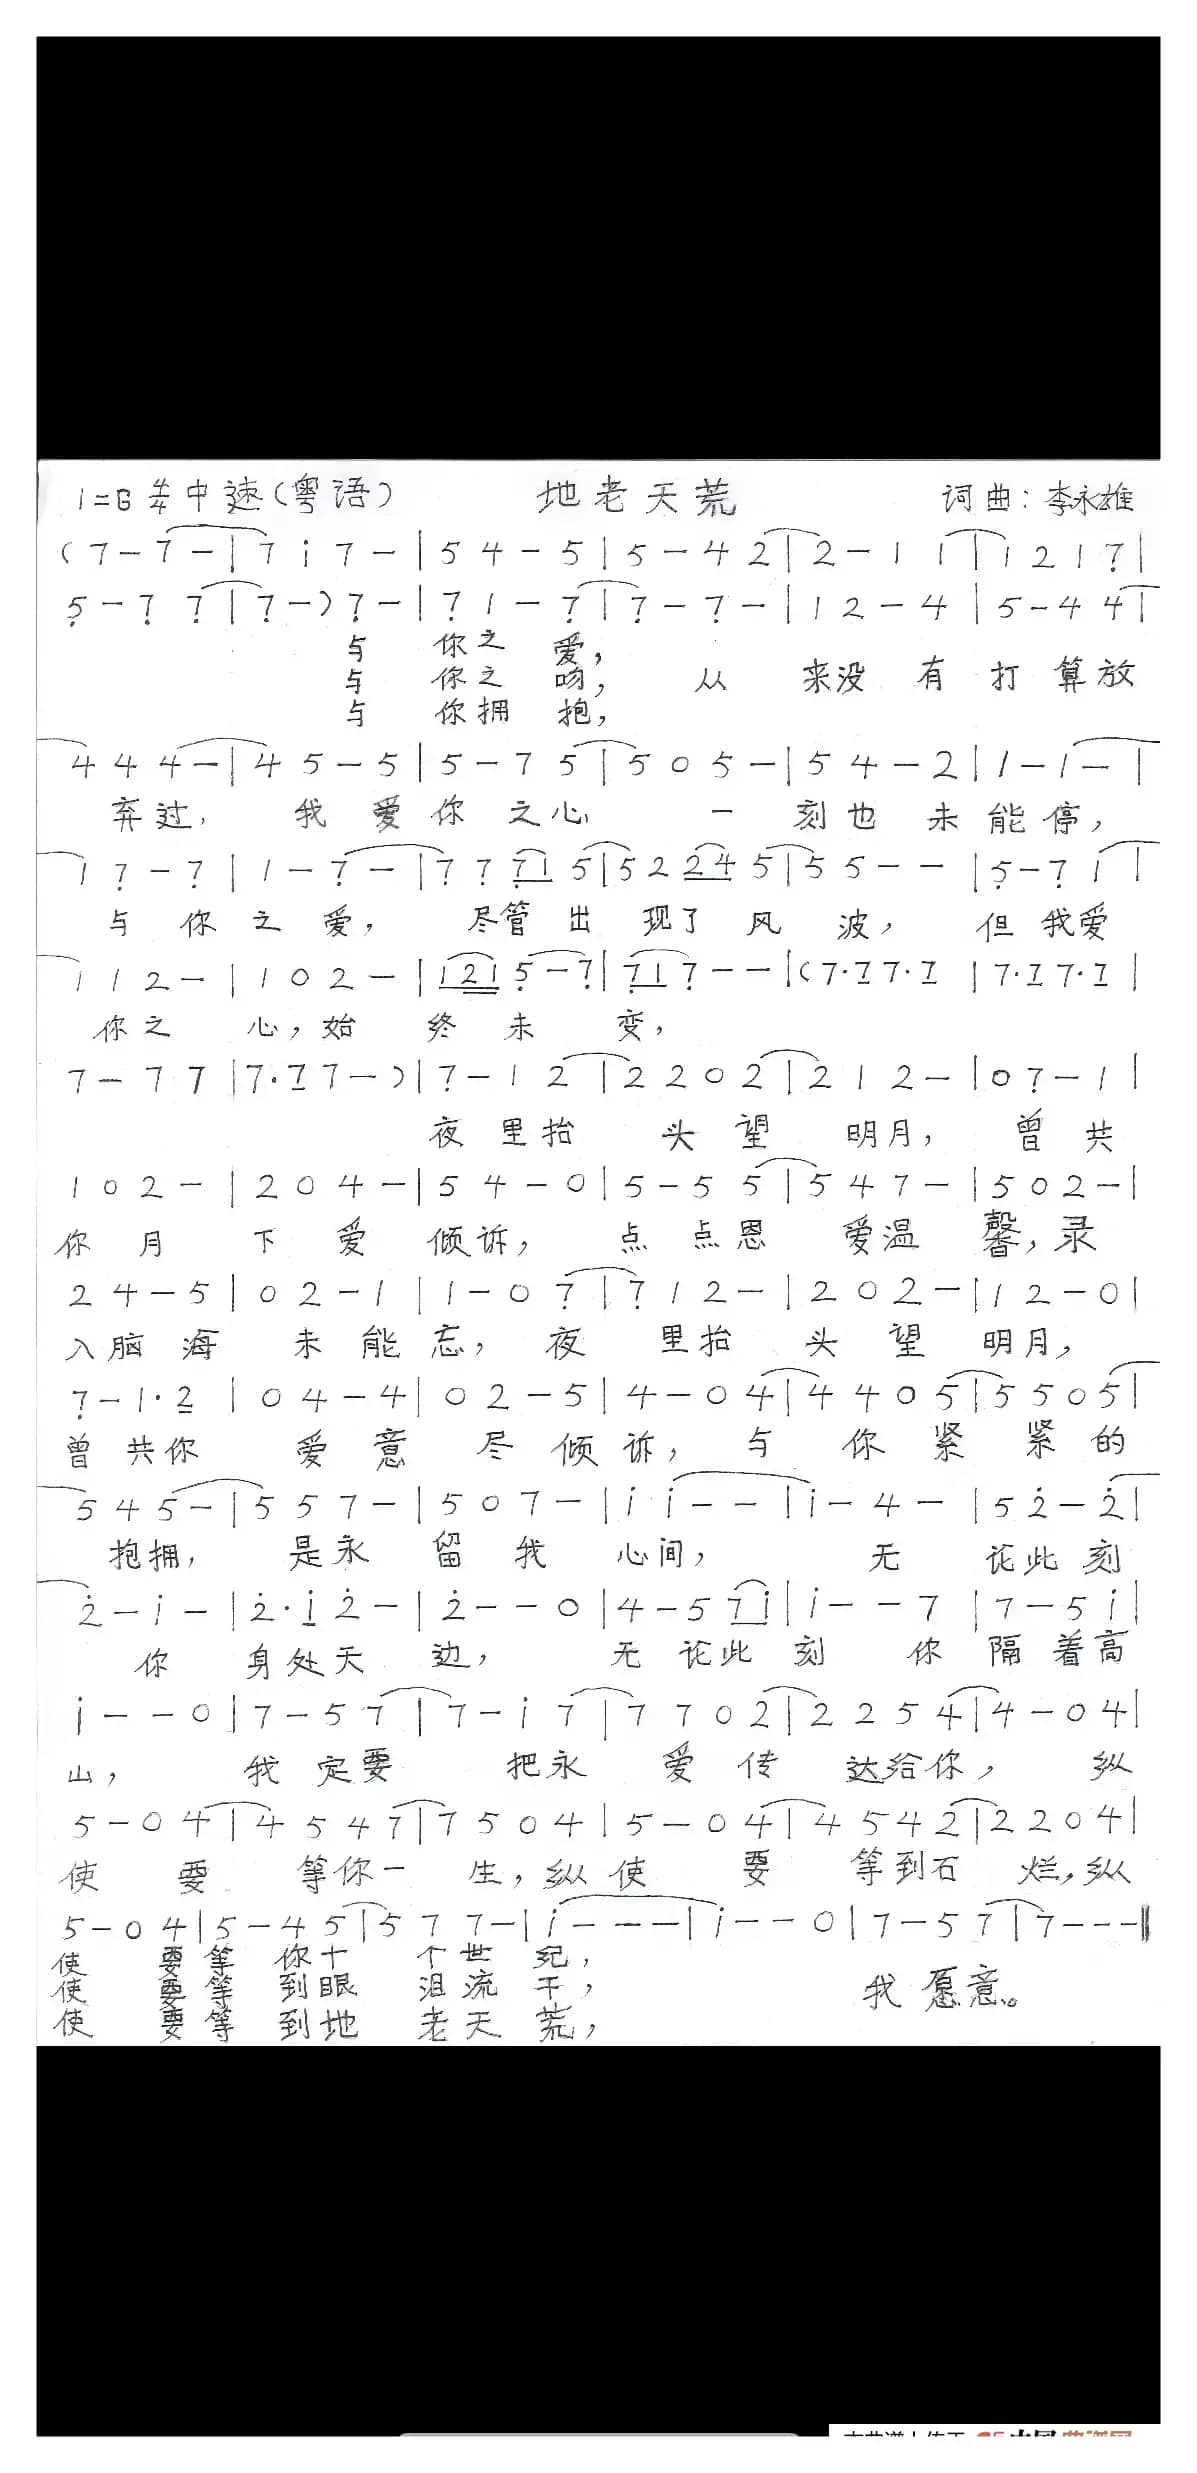 1=G 4/4 中速(粤语) 地老天荒 词曲:李永雄
(7-7-|7 i 7-|5 4-5|5-4 2|2-1 1|1 2 1 7̣|
5̣-7̣ 7̣|7̣-)7̣-|7̣ 1-7̣|7̣-7̣-|1 2-4|5-4 4|
与 你之 爱,
与 你之 吻, 从 来没 有 打 算放
与 你拥 抱,
4 4 4-|4 5-5|5-7 5|5 0 5-|5 4-2|1-1-|
弃过, 我 爱 你 之心 一 刻也 未 能停,
1 7̣-7̣|1-7̣-|7̣ 7̣ 7̣1 5|5 2 24 5|5 5--|5̣-7̣ 1|
与 你 之 爱, 尽管 出 现了 风 波, 但 我爱
1 1 2-|1 0 2-|121 5̣-7̣|7̣1 7̣--|(7·1 7·1|7·1 7·1|
你之 心,始 终 未 变,
7-7 7|7·7 7-)|7̣-1 2|2 2 0 2|2 1 2-|0 7̣-1|
夜 里抬 头 望 明月, 曾 共
1 0 2-|2 0 4-|5 4-0|5-5 5|5 4 7-|5 0 2-|
你 月 下 爱 倾诉, 点 点恩 爱温 馨,录
2 4-5|0 2-1|1-0 7̣|7̣ 1 2-|2 0 2-|1 2-0|
入脑 海 未 能 忘, 夜 里抬 头 望 明月,
7̣-1·2|0 4-4|0 2-5|4-0 4|4 4 0 5|5 5 0 5|
曾 共你 爱 意 尽 倾 诉, 与 你 紧 紧 的
5 4 5-|5 5 7-|5 0 7-|i i--|i-4-|5 2̇-2̇|
抱拥, 是永 留 我 心间, 无 论此 刻
2̇-i-|2̇·i 2̇-|2̇--0|4-5 7i|i--7|7-5 i|
你 身处天 边, 无 论此 刻 你 隔 着高
i--0|7-5 7|7-i 7|7 7 0 2|2 2 5 4|4-0 4|
山, 我 定要 把永 爱 传 达给你, 纵
5-0 4|4 5 4 7|7 5 0 4|5-0 4|4 5 4 2|2 2 0 4|
使 要 等你一 生,纵 使 要 等到石 烂,纵
5-0 4|5-4 5|5 7 7-|i---|i--0|7-5 7|7---‖
使 要 等 你十 个世 纪,
使 要 等 到眼 泪流 干, 我 愿意。
使 要 等 到地 老天 荒,